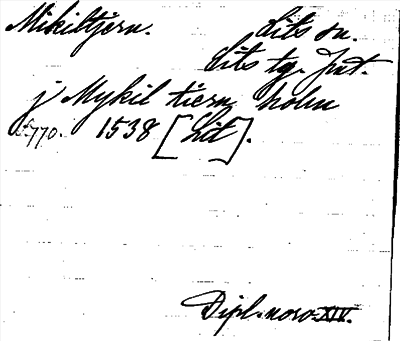 Mikiltjern. Lits sn.
Lits tg. Jmt.
j Mykil tiern holm
s. 770. 1538 [Lit].
Dipl. norv. XIV.